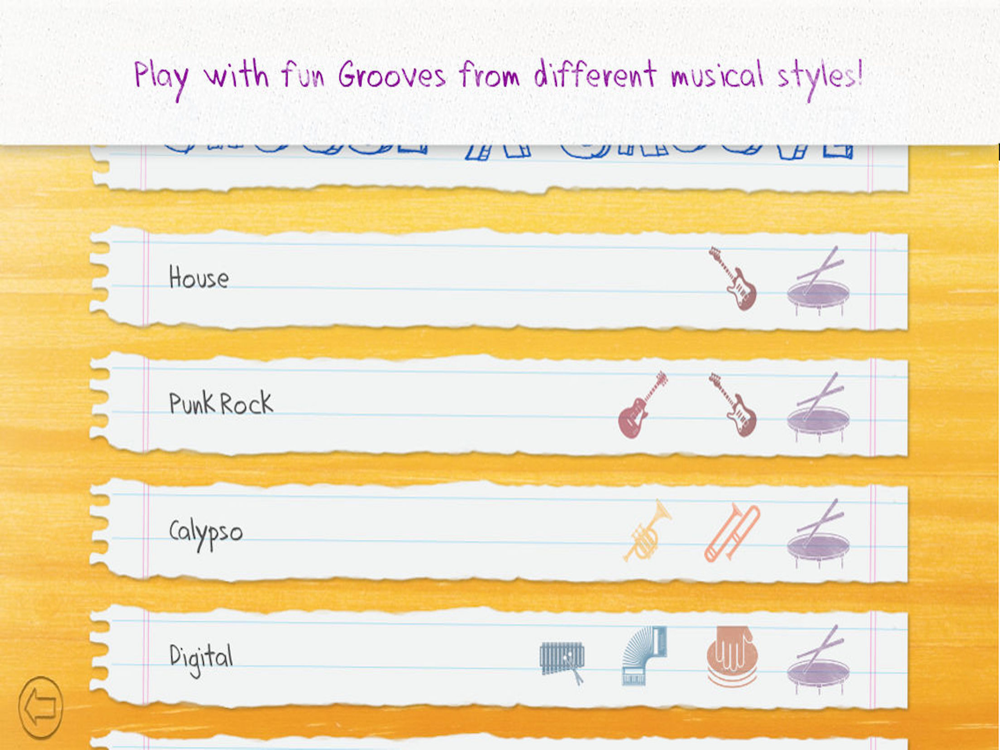 Play with fun Grooves from different musical styles!
House
Punk Rock
Calypso
Digital